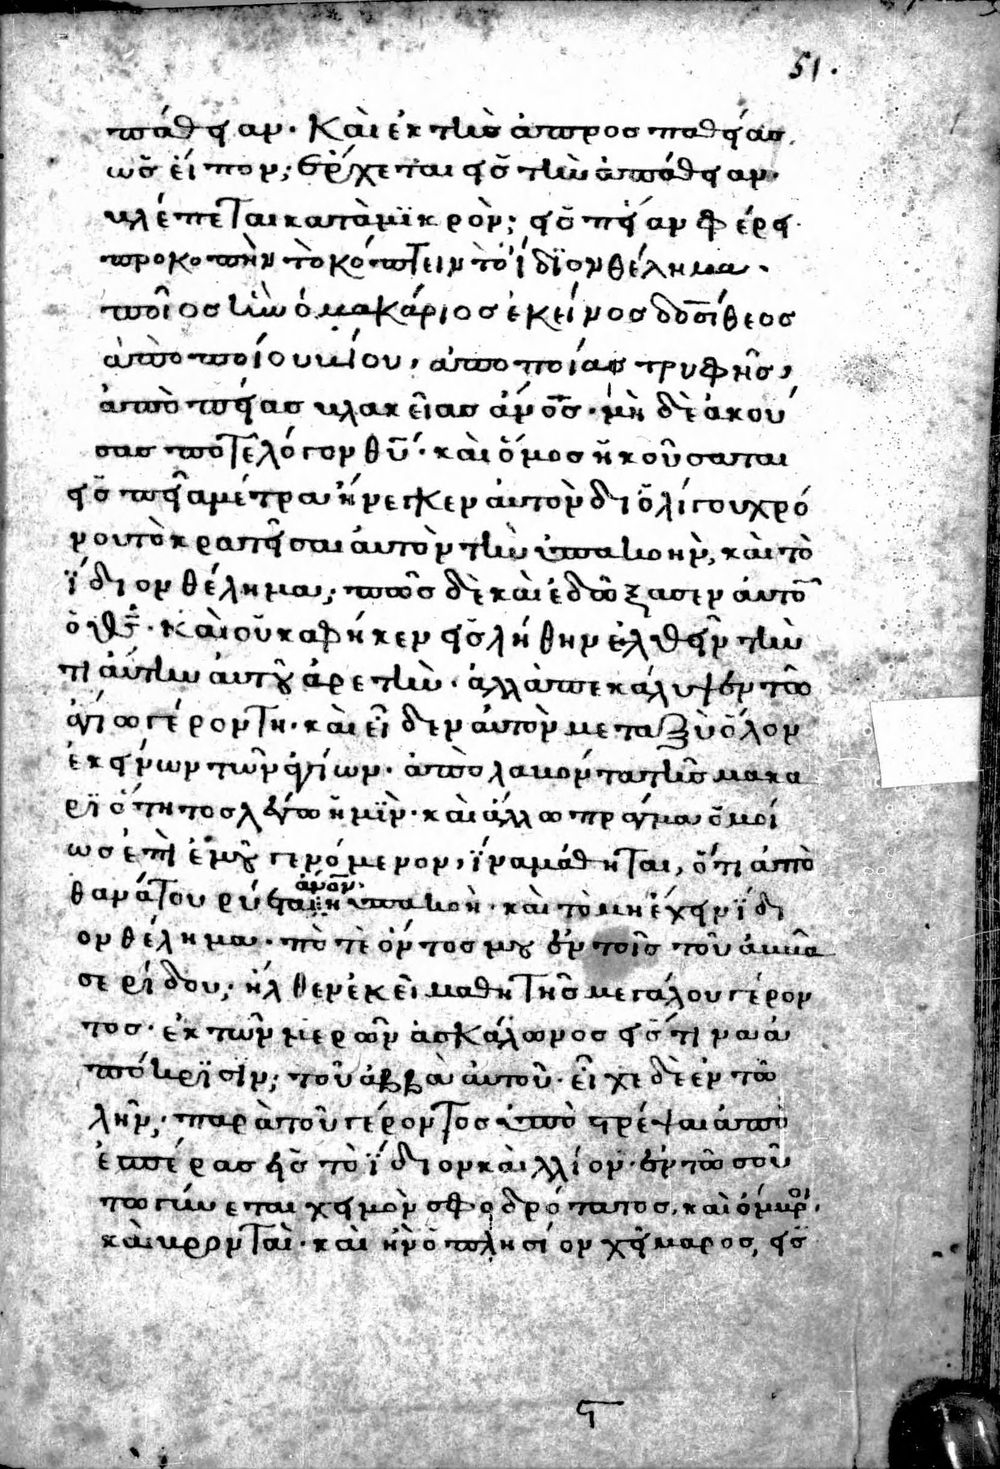 51.
πάθειαν. Καὶ ἐκ τῆς ἀπροσπαθείας,
ὡς εἶπον; ἔρχεται εἰς τὴν ἀπάθειαν.
βλέπεται κατὰ μϊκρὸν; εἰς ποίαν φέρει
προκοπὴν τὸ κόπτειν τὸ ἴδϊον θέλημα.
ποῖος ἦν ὁ μακάριος ἐκεῖνος δοσίθεος
ἀπὸ ποίου βίου, ἀπο ποίας τρυφῆς,
ἀπὸ ποίας βλακείας ἄνος. μὴ δὲ ἀκού
σας ποτε λόγον θῦ. καὶ ὅμος ἠκούσαται
εἰς ποῖα μέτρα ἤνεγκεν ἀυτὸν δι ὀλίγου χρό
νου τὸ κρατῆσαι ἀυτὸν τὴν ὑπακοὴν, καὶ τὸ
ἴδιον θέλημα; πῶς δὲ καὶ ἐδόξασεν ἀυτὸν
ὁ θς. καὶ οὐκ ἀφῆκεν εἰς λήθην ἐλθεῖν τὴν
τιάυτην ἀυτοῦ ἀρετὴν. ἀλλὰ ἀπεκάλυψεν τῶ
ἁγίω γέροντη. καὶ εἶδεν ἀυτὸν μεταξὺ ὅλον
ἐκείνων τῶν ἁγίων. ἀπολαβόντα τῆς μακα
ρϊότητος λέγω ἡμῖν. καὶ ἄλλω πράγμα ὅμοί
ως ἐπὶ ἐμοῦ γενόμενον, ἵνα μάθηται, ὅτι ἀπὸ
θανάτου ῥύεται ἄνον ἡ ὑπακοή. καὶ τὸ μὴ ἔχειν ϊδι
ον θέλημα. πότε ὄντος μου ἐν τοῖς τοῦ ἀββᾶ
σερίδου; ἦλθεν ἐκεῖ μαθητῆς μεγάλου γέρον
τος. ἐκ τῶν μερῶν ἀσκάλωνος εἰς τινα ἀ
πόκρϊσϊν; τοῦ ἀββὰ ἀυτοῦ. εἶχε δὲ ἐν τω
λὴν, παρὰ τοῦ γέροντος ὑποστρέψαι ἀπὸ
ἑσπέρας εἰς τὸ ἴδιον καὶλλίον. ἐν τῶ οὖν
τω γίνεται χειμὸν σφοδρότατος. καὶ ὄμβροι,
καὶ βρονταὶ. καὶ ἦν ὁ πλησίον χείμαρος, εἰς